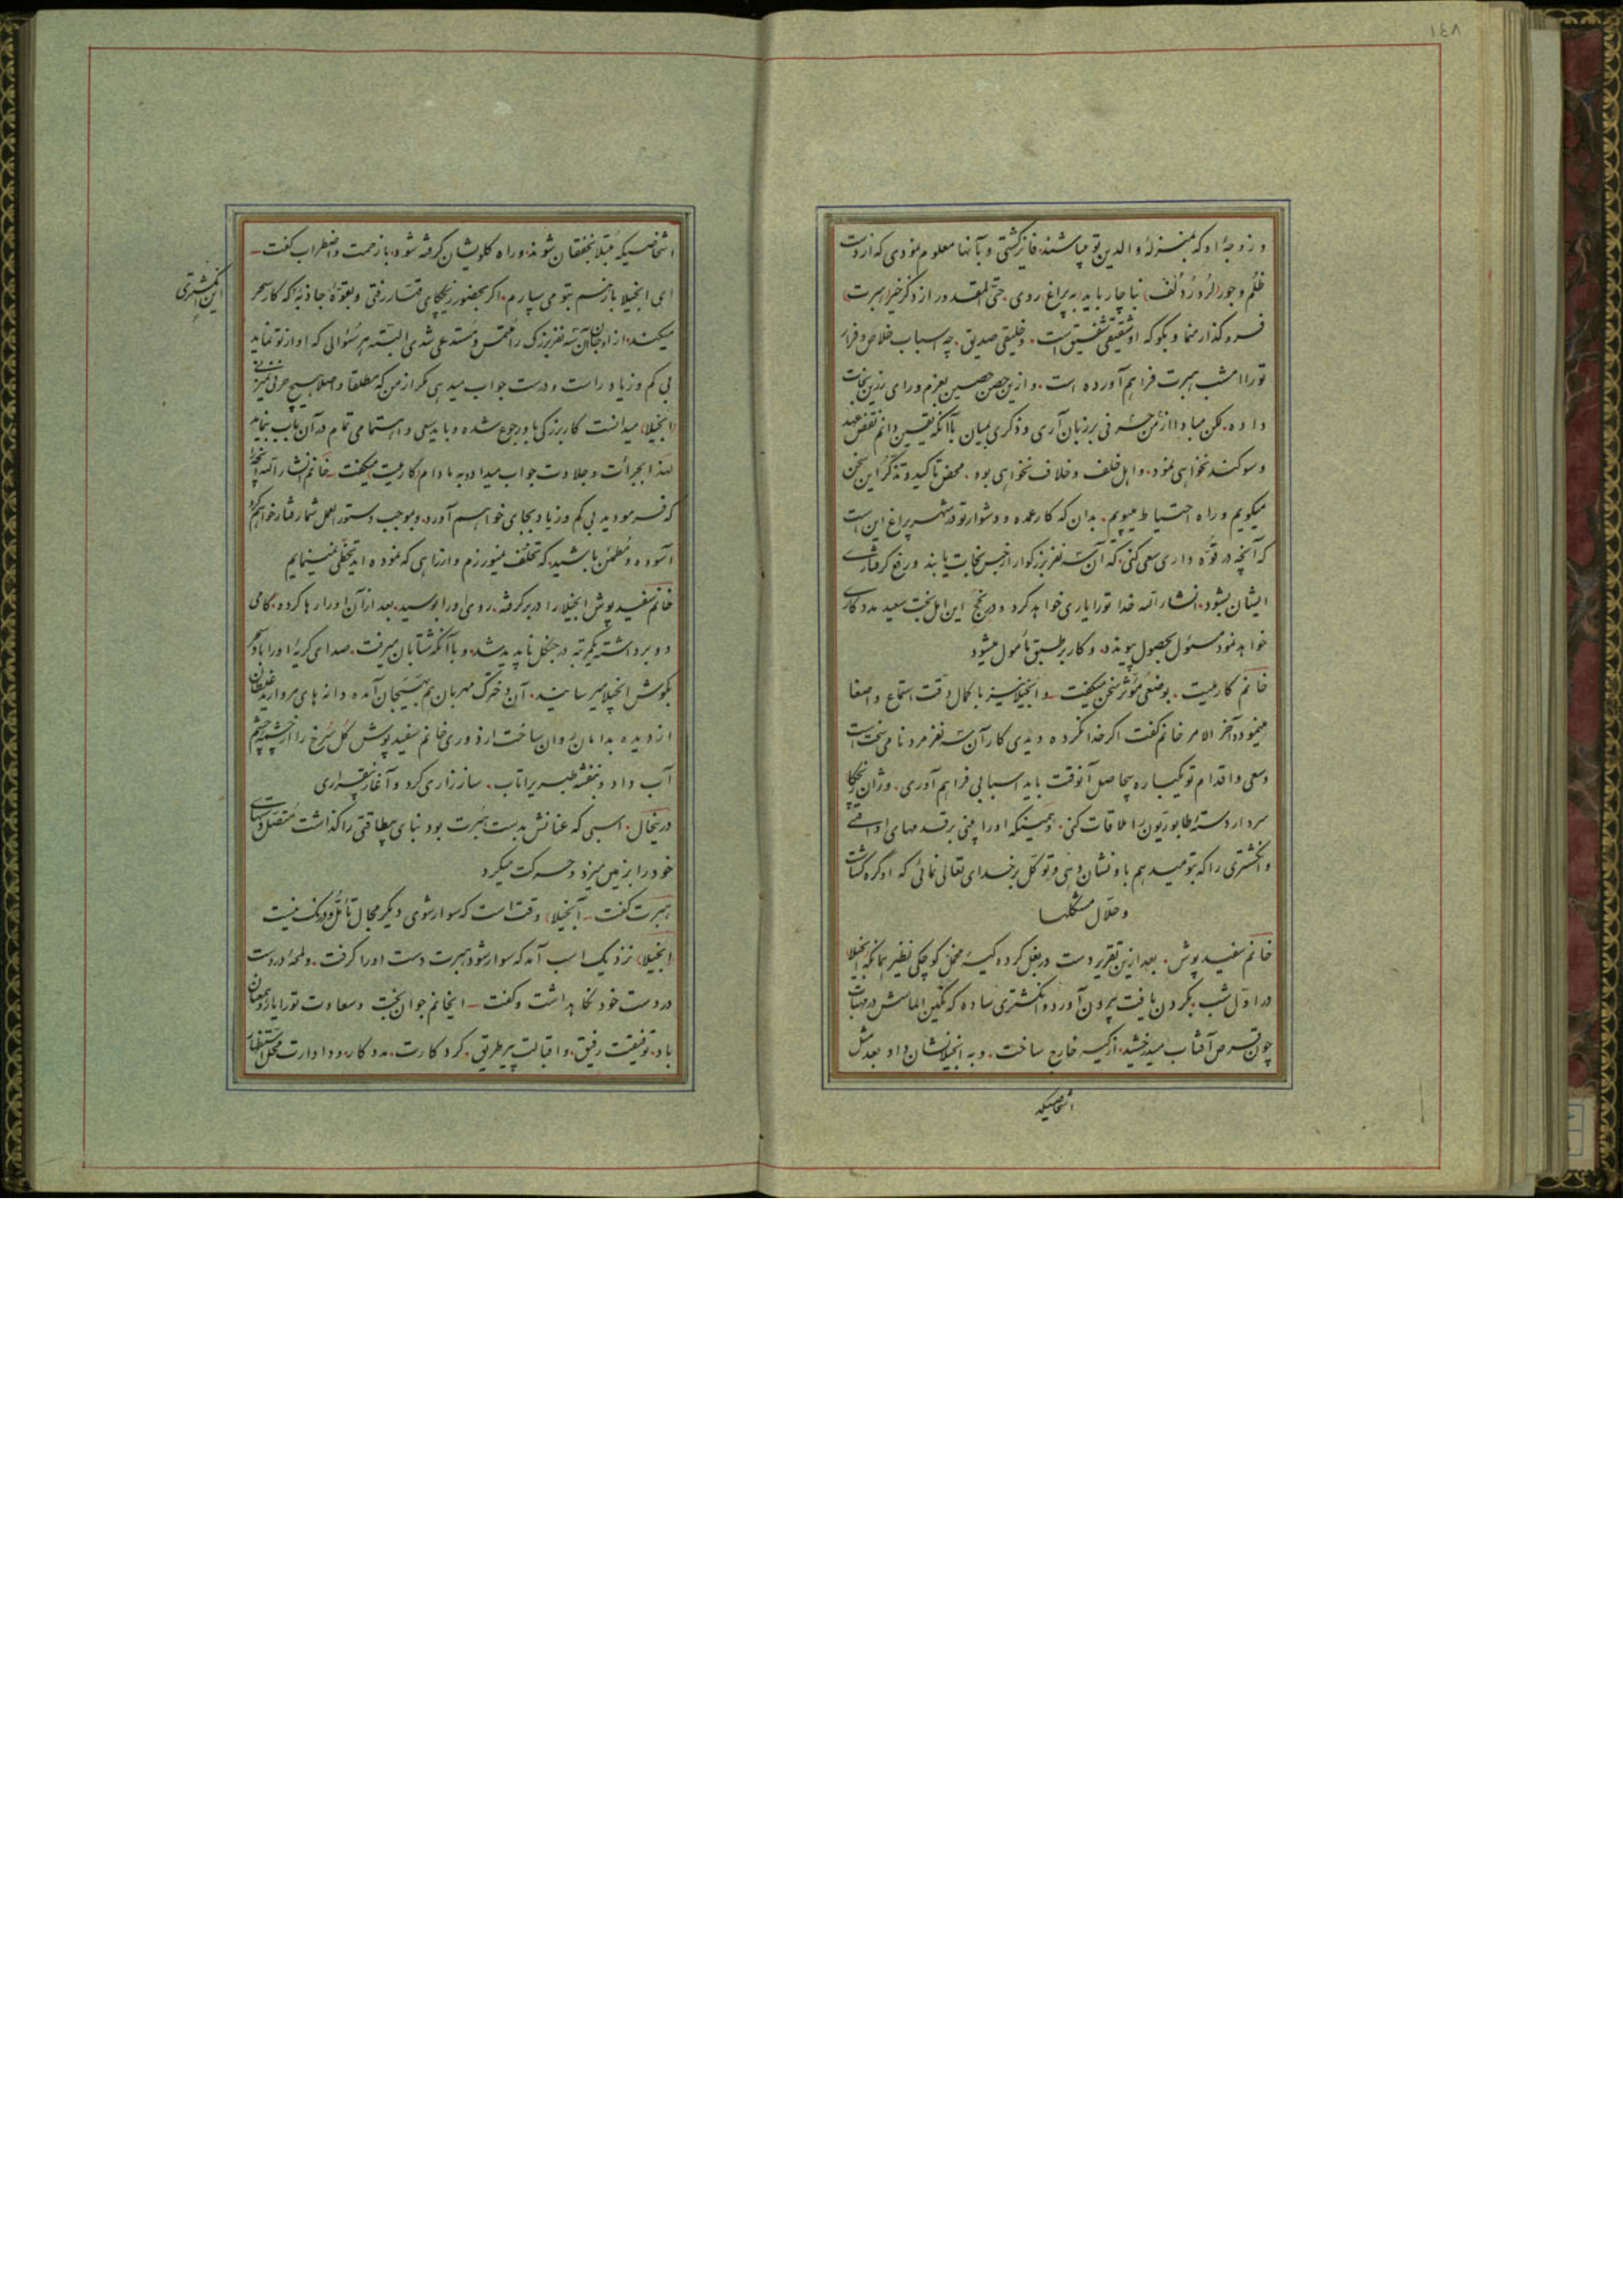 ١٤٨
و زوجهٔ او که بمنزلهٔ والدین تو میباشند فایز گشتی و بآنها معلوم نمودی که از دست
ظلم و جور لرد رُدُلف ناچار باید به پراغ روی. حتی المقدور از ذکر خیر هبرت
فروگذار منما و بگو که او شفیقی شفیق است. و خلیقی صدیق. چه اسباب خلاص و فرار
تو را امشب هبرت فراهم آورده است. و ازین حصن حصین بعزم و رای رزین نجات
داده. لکن مبادا از من حرفی بر زبان آری و ذکری بمیان با آنکه یقین دانم نقض عهد
و سوگند نخواهی نمود. و اهل خلف و خلاف نخواهی بود. محض تاکید و تذکر این سخن
میگویم و راه احتیاط میپویم. بدان که کار عمده و دشوار تو در شهر پراغ این است
که آنچه در قوّه داری سعی کنی که آن سه نفر بزرگوار از حبس نجات یابند و رفع گرفتاری
ایشان بشود. انشاءالله خدا تو را یاری خواهد کرد و در نجح این امل بخت سعید مددکاری
خواهد نمود مسئول بحصول پیوندد. و کار بر طبق مأمول میشود
خانم کارمیت. بوضعی مؤثر سخن میگفت. و انجیلا نیز با کمال دقت استماع و اصغا
مینمود آخر الامر خانم گفت اگر خدا نکرده دیدی کار آن سه نفر مرد نامی سخت است
و سعی و اقدام تو یکباره بیحاصل آنوقت باید اسبابی فراهم آوری. و ژان زیچکا
سردار دسته طابوریون را ملاقات کنی. و همینکه او را بینی بر قدمهای او افتی
و انگشتری را که بتو میدهم باو نشان دهی و توکل بر خدای تعالی نمائی که او گره گشاست
و حلال مشکلها
خانم سفید پوش. بعد ازین تقریر دست در بغل کرده کیسه مخمل کوچکی نظیر همانکه انجیلا
در اول شب بگردن یافت بیرون آورد و انگشتری ساده که نگین الماسش در مهتاب
چون قرص آفتاب میدرخشید از کیسه خارج ساخت. و به انجیلا نشان داد بعد مثل
اشخاصیکه
اشخاصیکه مبتلا بخفقان شوند و راه گلویشان گرفته شود با زحمت و اضطراب گفت
ای انجیلا باز هم بتو می سپارم. اگر بحضور زیچکای قهار رفتی و بقوّهٔ جاذبه که کار سحر
این انگشتری
میکند. از او جان آن سه نفر بزرگ را ملتمس و مستدعی شدی البته هر سؤالی که او از تو نماید
بی کم و زیاد راست و درست جواب میدهی مگر از من که مطلقا و اصلا هیچ حرفی نمیزنی
انجیلا میدانست کار بزرگی باو رجوع شده و باید سعی و اهتمامی تمام در آن باب بنماید
لهذا بجرأت و جلادت جواب میداد و به مادام کارمیت میگفت خانم انشاءالله آنچه
که فرمودید بی کم و زیاد بجای خواهم آورد. و بموجب دستورالعمل شما رفتار خواهم کرد
آسوده و مطمئن باشید. که تخلف نمیورزم و از راهی که نموده اید تخطی نمینمایم
خانم سفید پوش انجیلا را در بر گرفته. روی او را بوسید. بعد از آن او را رها کرده. گامی
دو برداشته یکمرتبه در جنگل ناپدید شد. و با آنکه شتابان میرفت. صدای گریهٔ او را باد سحر
بگوش انجیلا میرسانید. آن دخترک مهربان هم بهیجان آمده دانه های مروارید غلطان
از دیده بدامان روان ساخت از دوری خانم سفید پوش گل سرخ را از چشمه چشم
آب داد و بنفشه طبری را تاب. ساز زاری کرد و آغاز بیقراری
درینحال. اسبی که عنانش بدست هبرت بود بنای بیطاقتی را گذاشت متصل دستهای
خود را بزمین میزد و حرکت میکرد
هبرت گفت آنجیلا وقت است که سوار شوی دیگر مجال تأمّل و درنگ نیست
انجیلا نزدیک اسب آمد که سوار شود هبرت دست او را گرفت. و لمحهٔ در دست
در دست خود نگاهداشت و گفت ایخانم جوان بخت و سعادت تو را یار و همعنان
باد. توفیقت رفیق. و اقبالت پیر طریق. کردگارت. مددکار. و دادارت محل استظهار